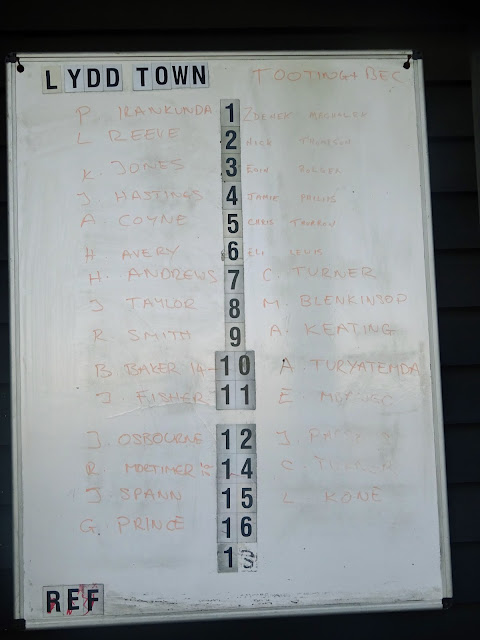 LYDD TOWN TOOTING + BEC
P. IRANKUNDA 1
L REEVE 2 NICK
K. JONES 3 ERIN
J. HASTINGS 4 JAMIE
A COYNE 5 CHRIS
H AVERY 6 ELI LEWIS
H. ANDREWS 7 C. TURNER
J TAYLOR 8 M. BLENKINSOP
R. SMITH 9 A. KEATING
B. BAKER 14 10 A. TURYATEMDA
J. FISHER 11 E.
J. OSBOURNE 12 J.
R. MORTIMER 14 C.
J. SPANN 15 L. KONE
G. PRINCE 16
1
REF